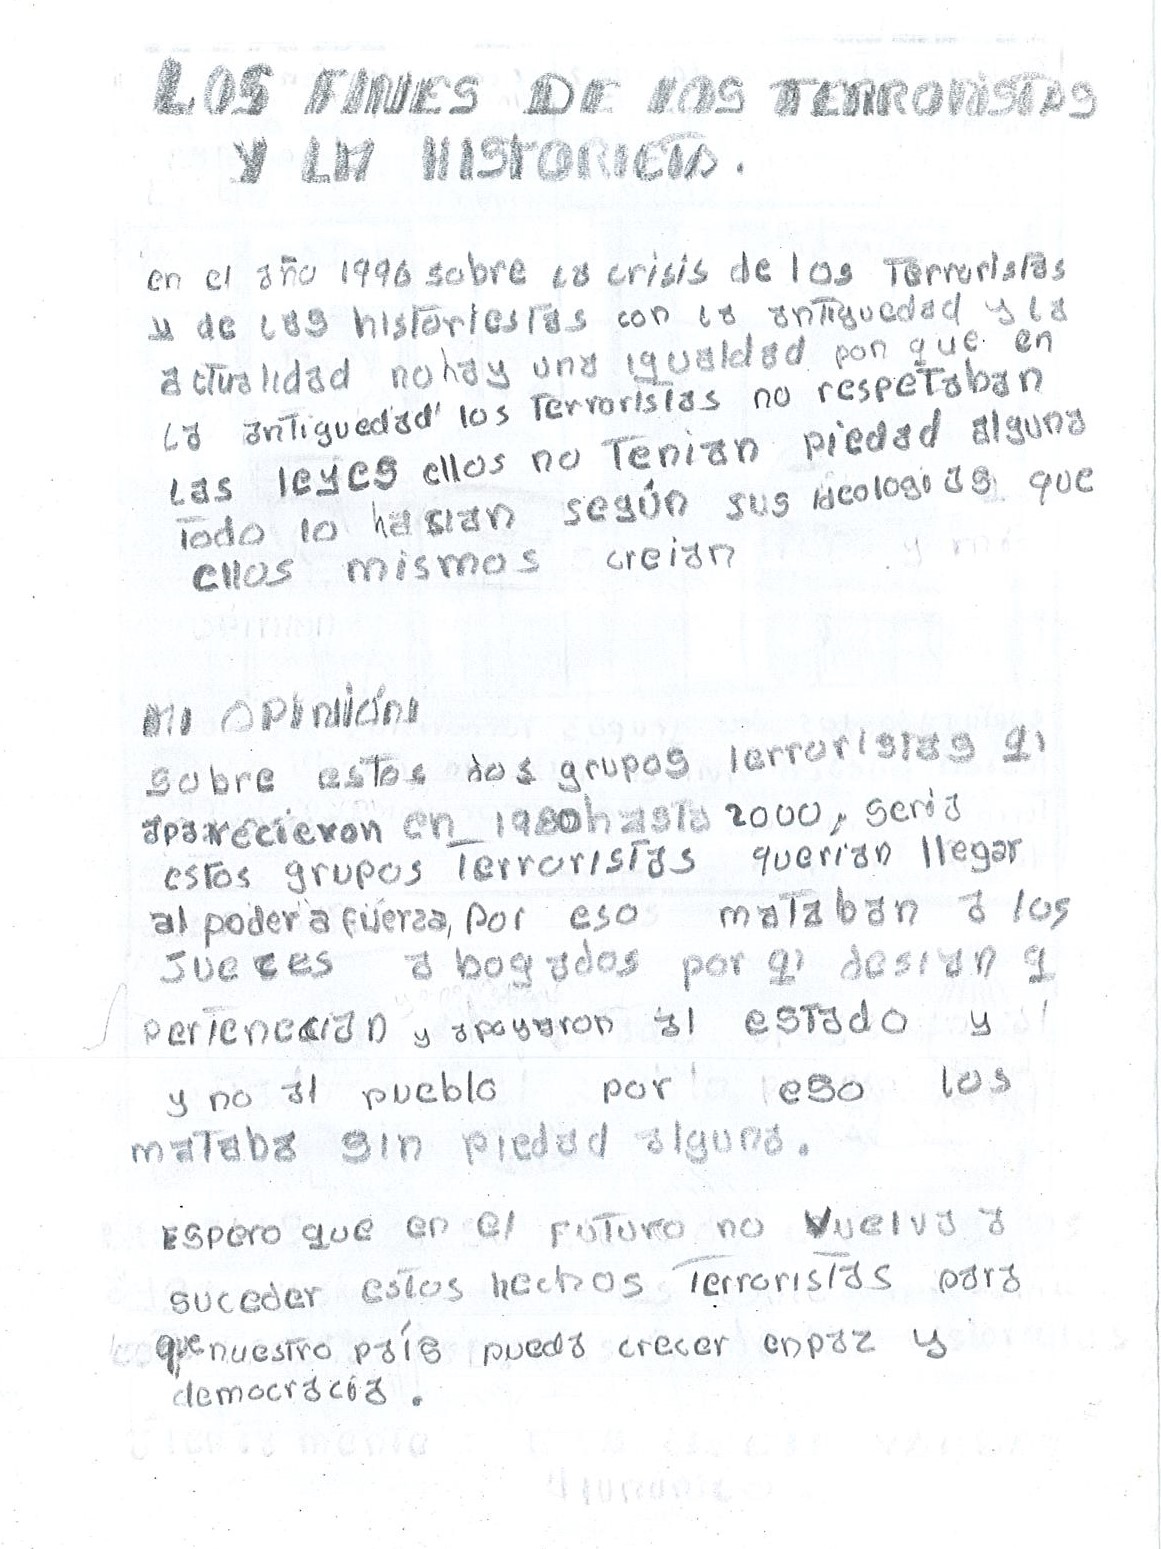 LOS FINES DE LOS TERRORISTAS
Y LA HISTORIETA.
en el año 1996 sobre la crisis de los Terroristas
y de las historiestas con la antiguedad y la
actualidad no hay una igualdad pon que en
la antiguedad los Terroristas no respetaban
las leyes ellos no Tenian piedad alguna
Todo lo hasian según sus ideologias que
ellos mismos creian
MI OPINIÓN
sobre estos dos grupos Terroristas qi
aparecieron en 1980 hasta 2000, seria
estos grupos Terroristas querian llegar
al poder a fuerza, por eso mataban a los
Jueces abogados por qi desian q
pertenecian y apoyaron al estado y
y no al pueblo por eso los
mataba sin piedad alguna.
Espero que en el futuro no vuelva a
suceder estos hechos Terroristas para
que nuestro país pueda crecer en paz y
democracia.